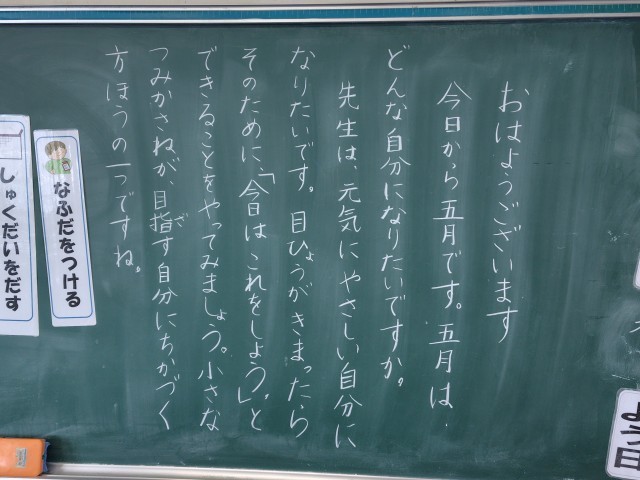 おはようございます
今日から五月です。五月は、
どんな自分になりたいですか。
先生は、元気にやさしい自分に
なりたいです。目ひょうがきまったら
そのために、「今日はこれをしよう。」と
できることをやってみましょう。小さな
つみかさねが、目指す自分にちかづく
ざ
方ほうの一つですね。
なふだをつける
しゅくだいをだす
よう日